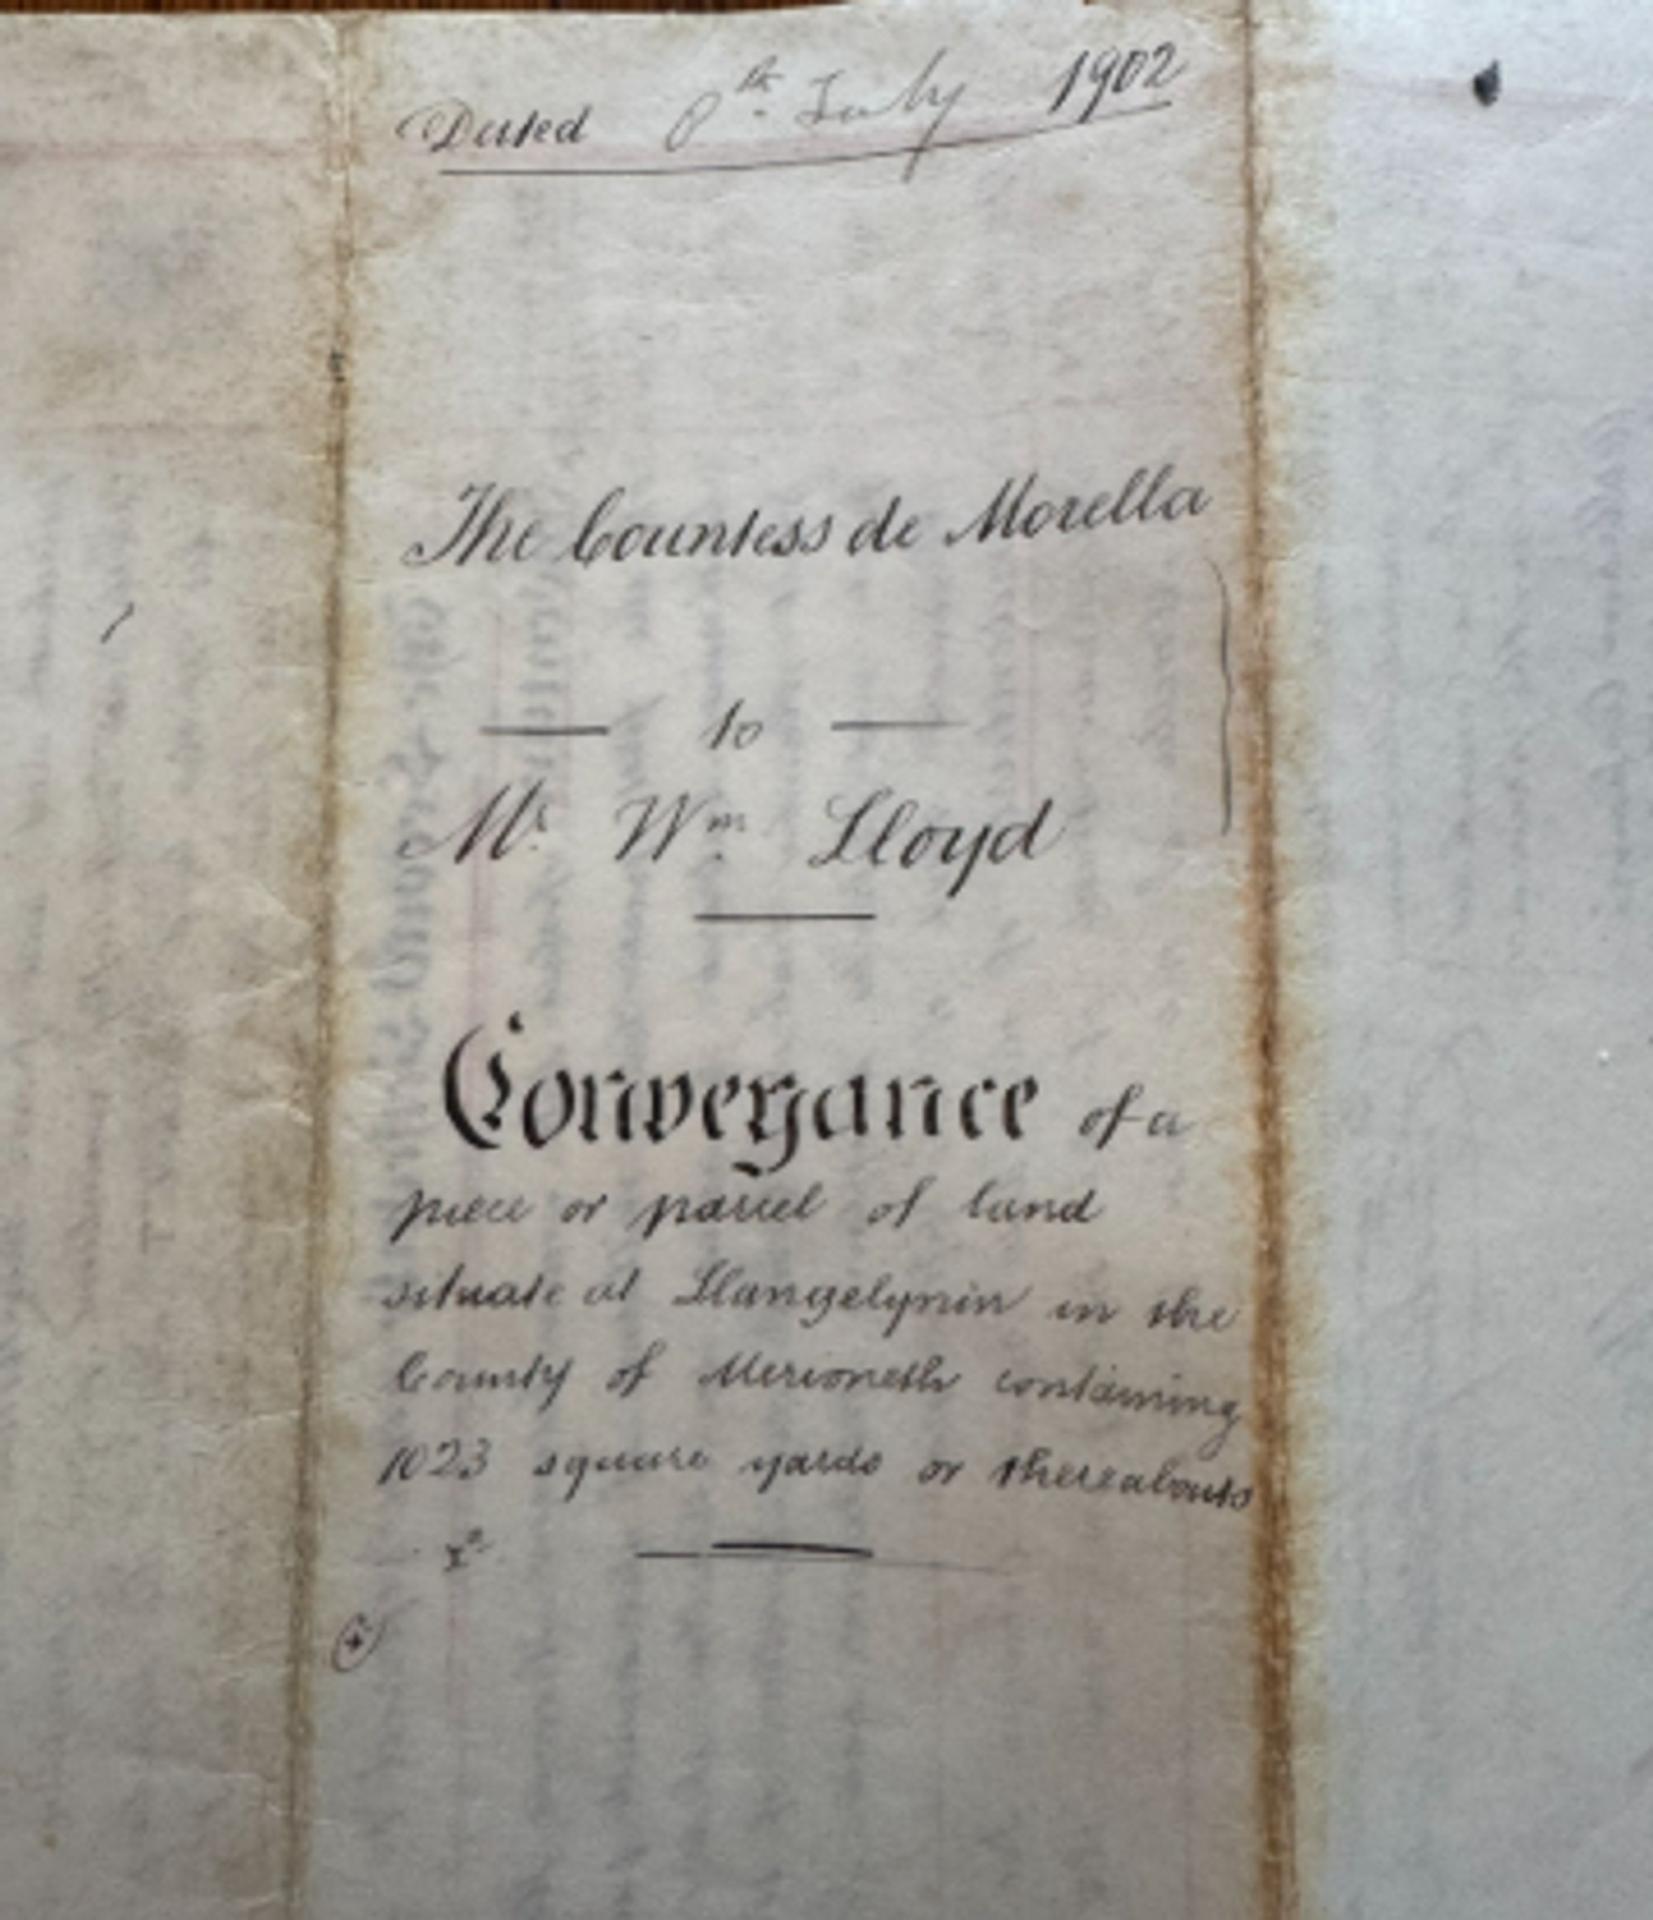 Dated 8th July 1902
The Countess de Morella
to
Mr Wm Lloyd
Conveyance of a
piece or parcel of land
situate at Llangelynin in the
County of Merioneth containing
1023 square yards or thereabouts